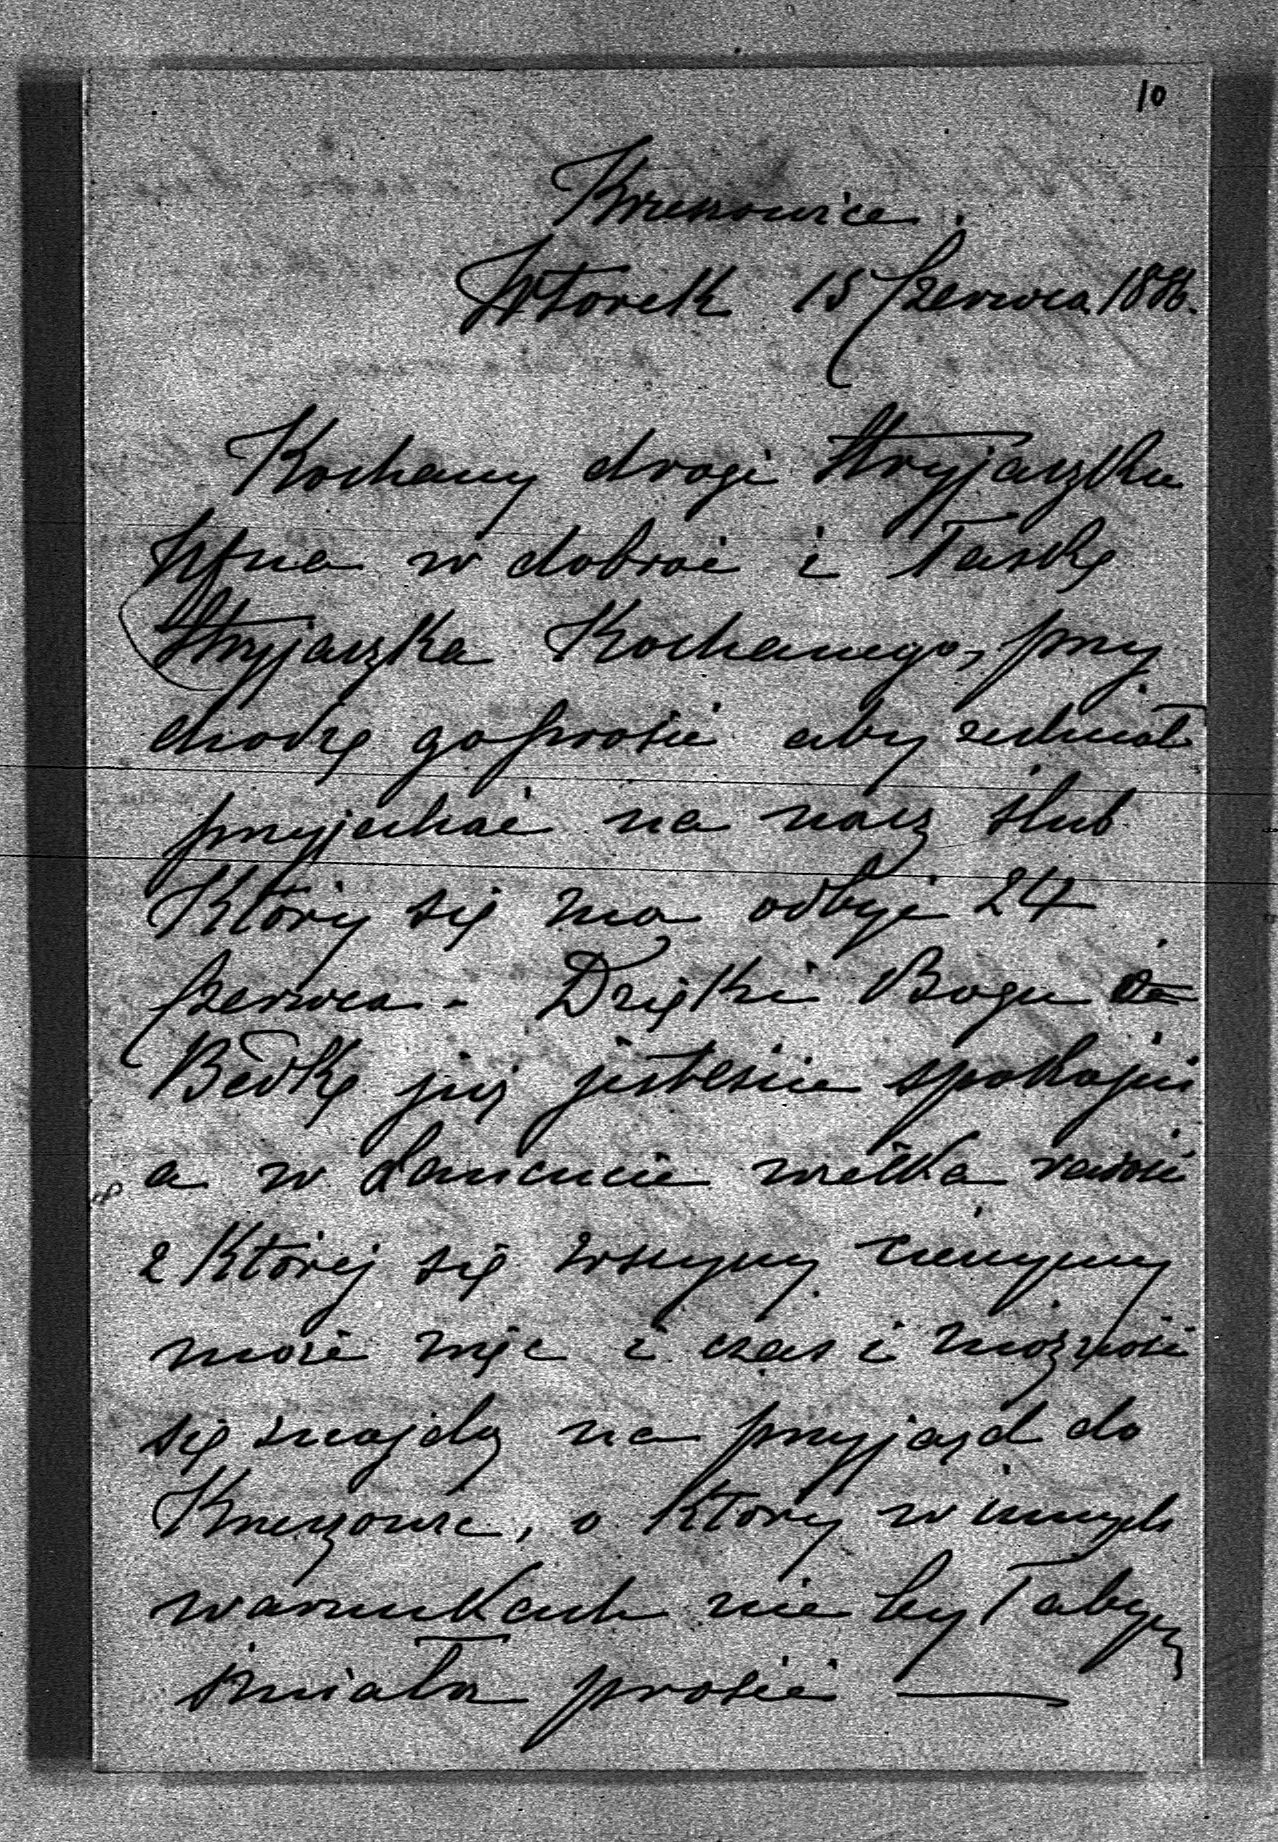 10
Krzeszowice.
Wtorek 15 Czerwca 1886.
Kochany drogi Stryjaszku
Ufna w dobroć i łaskę
Stryjaszka Kochanego, przy
chodzę go prosić aby zechciał
przyjechać na nasz ślub
Który się ma odbyć 24
Czerwca. Dzięki Bogu o
Betkę już jesteście spokojni
a w Łańcucie wielka radość
z Której się wszyscy cieszymy
może więc i czas i możność
się znajdą na przyjazd do
Krzeszowic, o Który w innych
warunkach nie byłabym
śmiała prosić —